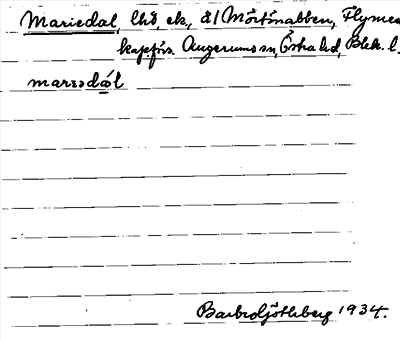 Mariedal, lhd, ek, å/ Mörtönabben, Flymes
kapförs. Augerums sn, Östra hd, Blek. l.
marıədál
Barbro Söderberg 1934.